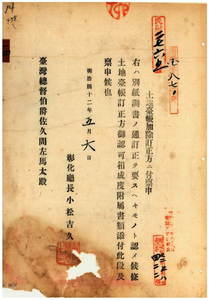 土地臺帳加除訂正方ニ付稟申
右ハ別紙調書ノ通訂正ヲ要スヘキモノト認メ候條
土地臺帳訂正方御認可相成度附屬書類添付此段及
稟申候也
明治四十二年五月六日
彰化廳長小松吉久
臺灣總督伯爵佐久間左馬太殿